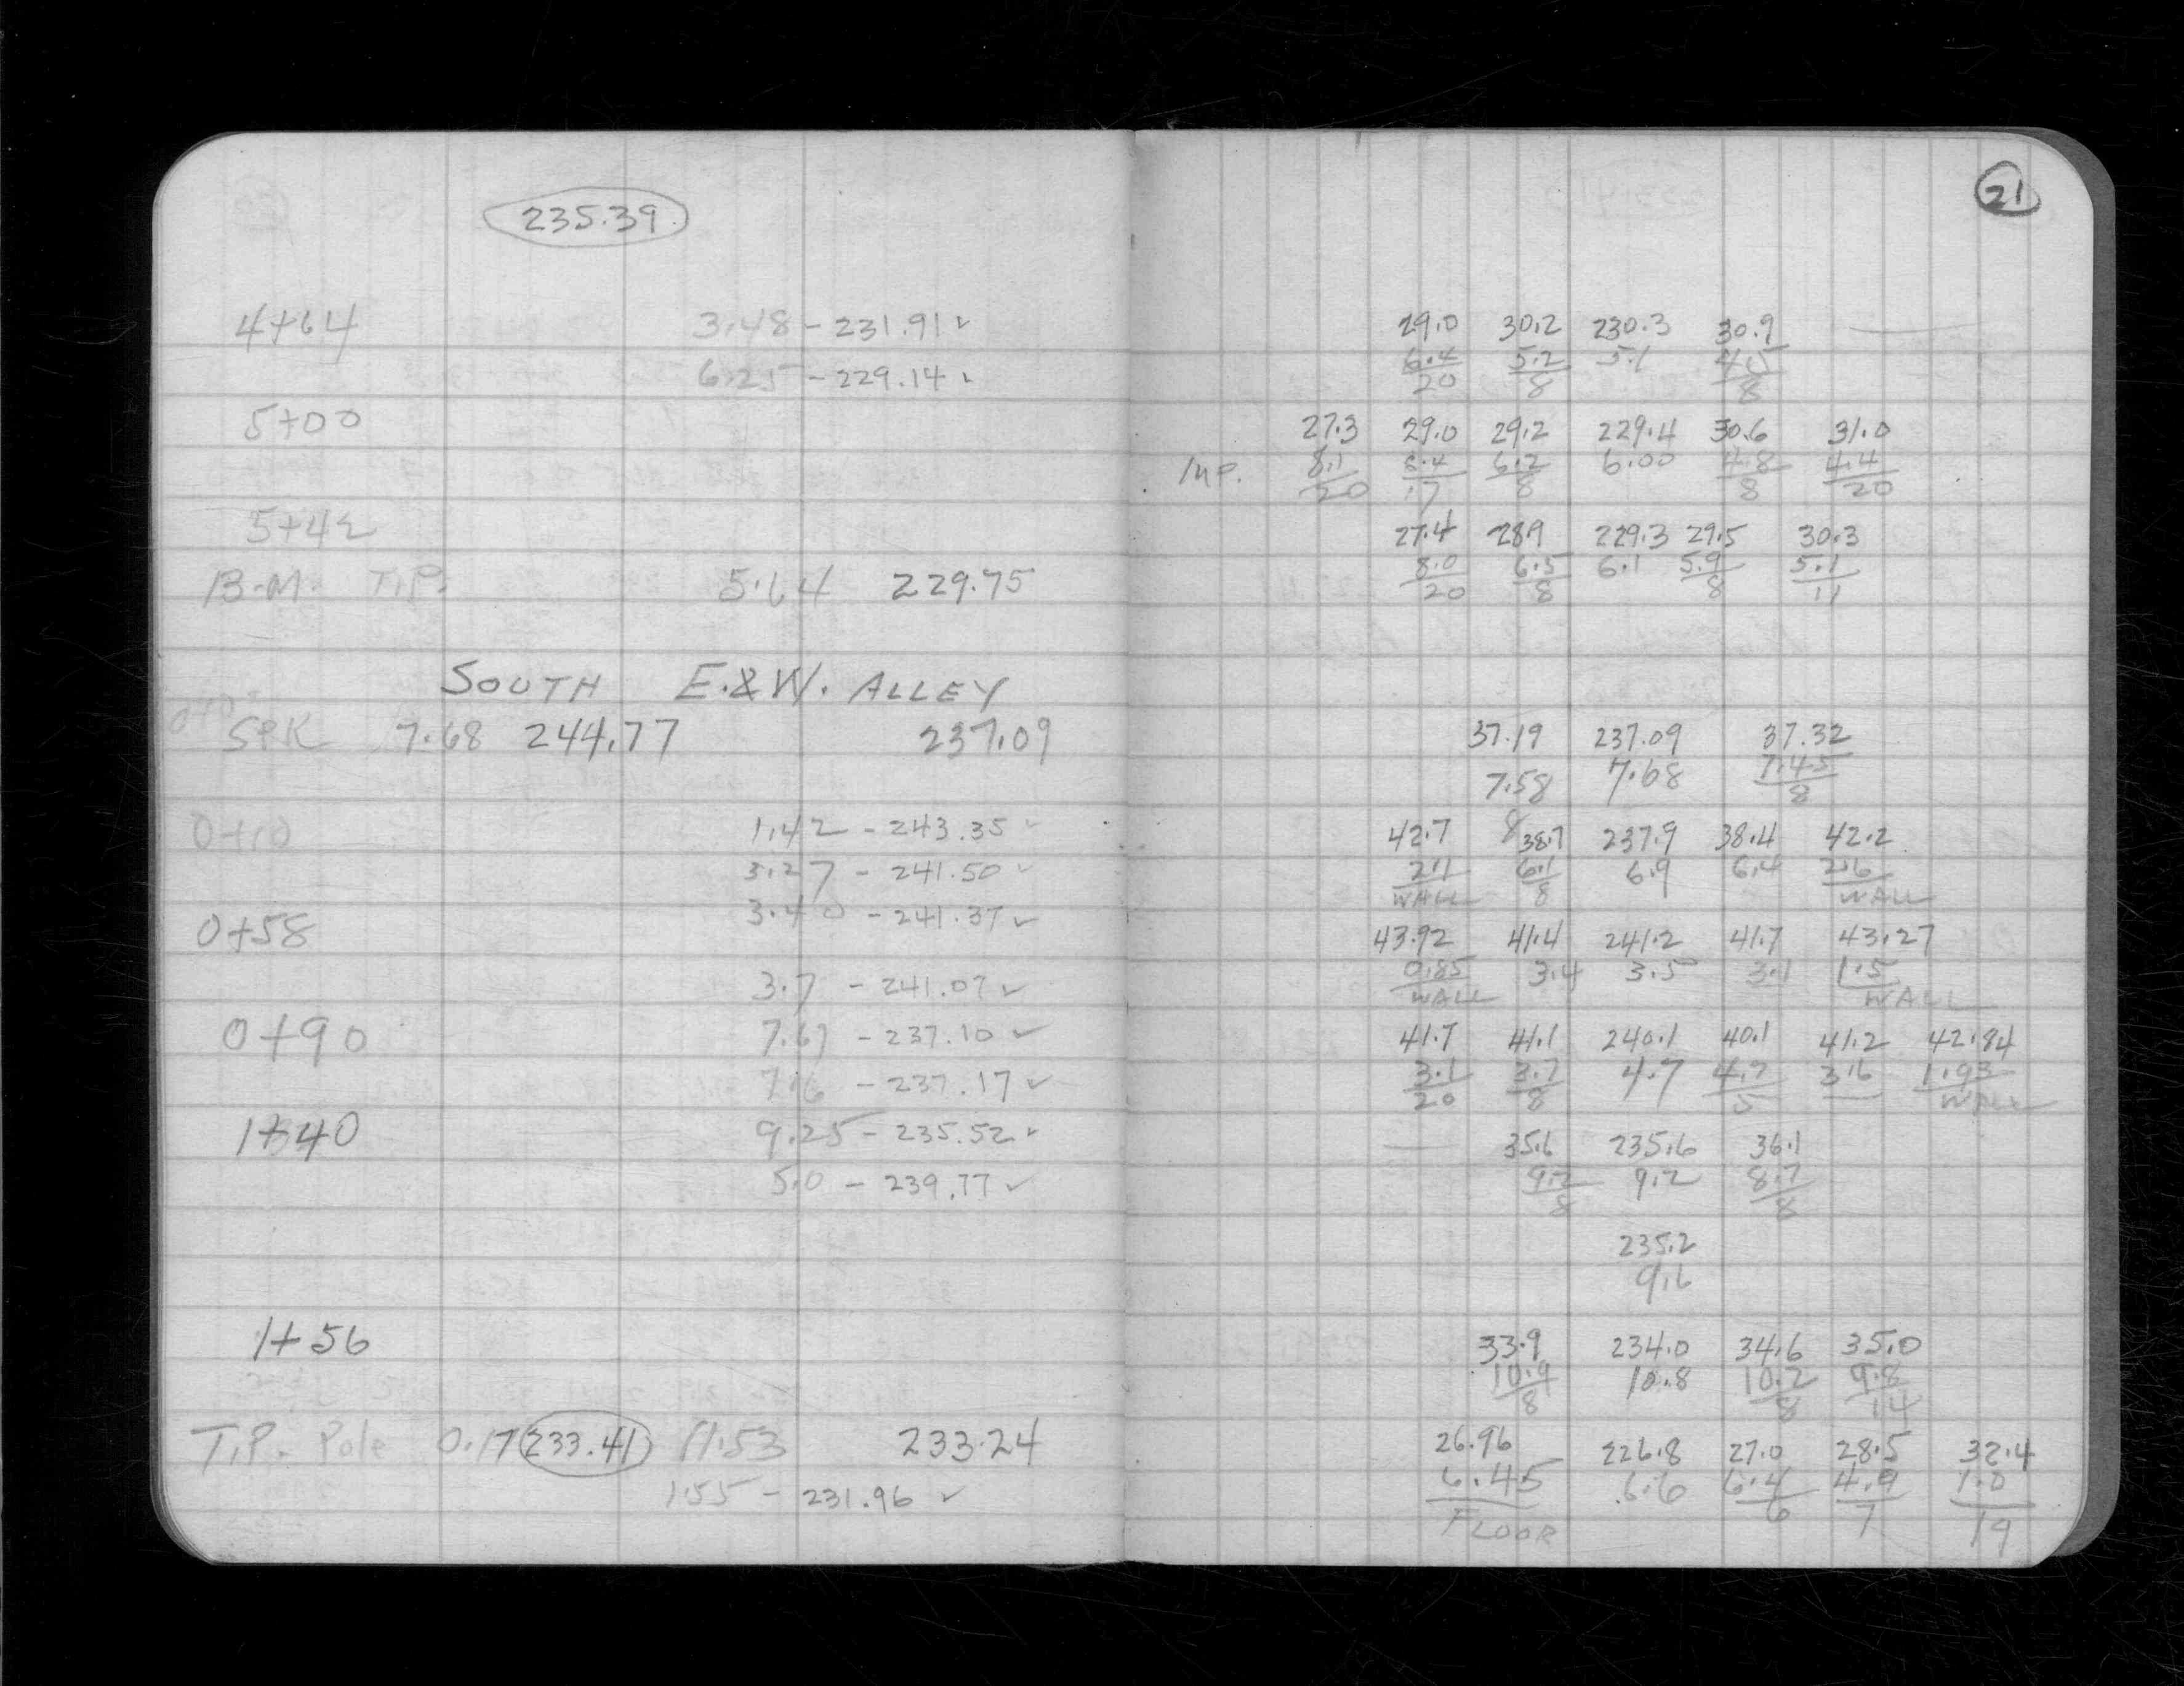 235.39
4+64 3.48 - 231.91 ✓
6.25 - 229.14 ✓
5+00
5+42
B.M. T.P. 5.64 229.75
SOUTH E.&W. ALLEY
SPK 7.68 244.77 237.09
0+10 1.42 - 243.35 ✓
3.27 - 241.50 ✓
3.40 - 241.37 ✓
0+58
3.7 - 241.07 ✓
0+90 7.67 - 237.10 ✓
7.6 - 237.17 ✓
1+40 9.25 - 235.52 ✓
5.0 - 239.77 ✓
1+56
T.P. Pole 0.17 233.41 11.53 233.24
1.55 - 231.96 ✓
21
29.0 30.2 230.3 30.9
6.4 5.2 5.1 4.5
20 8 8
27.3 29.0 29.2 229.4 30.6 31.0
IMP. 8.1 6.4 6.2 6.00 4.8 4.4
20 17 8 8 20
27.4 28.9 229.3 29.5 30.3
8.0 6.5 6.1 5.9 5.1
20 8 8 11
37.19 237.09 37.32
7.58 7.68 7.45
8 8
42.7 38.7 237.9 38.4 42.2
2.1 6.1 6.9 6.4 2.6
WALL 8 WALL
43.92 41.4 241.2 41.7 43.27
0.85 3.4 3.5 3.1 1.5
WALL WALL
41.7 41.1 240.1 40.1 41.2 42.84
3.1 3.7 4.7 4.7 3.6 1.93
20 8 5 WALL
35.6 235.6 36.1
9.2 9.2 8.7
8 8
235.2
9.6
33.9 234.0 34.6 35.0
10.9 10.8 10.2 9.8
8 8 14
26.96 226.8 27.0 28.5 32.4
6.45 6.6 6.4 4.9 1.0
FLOOR 6 7 19